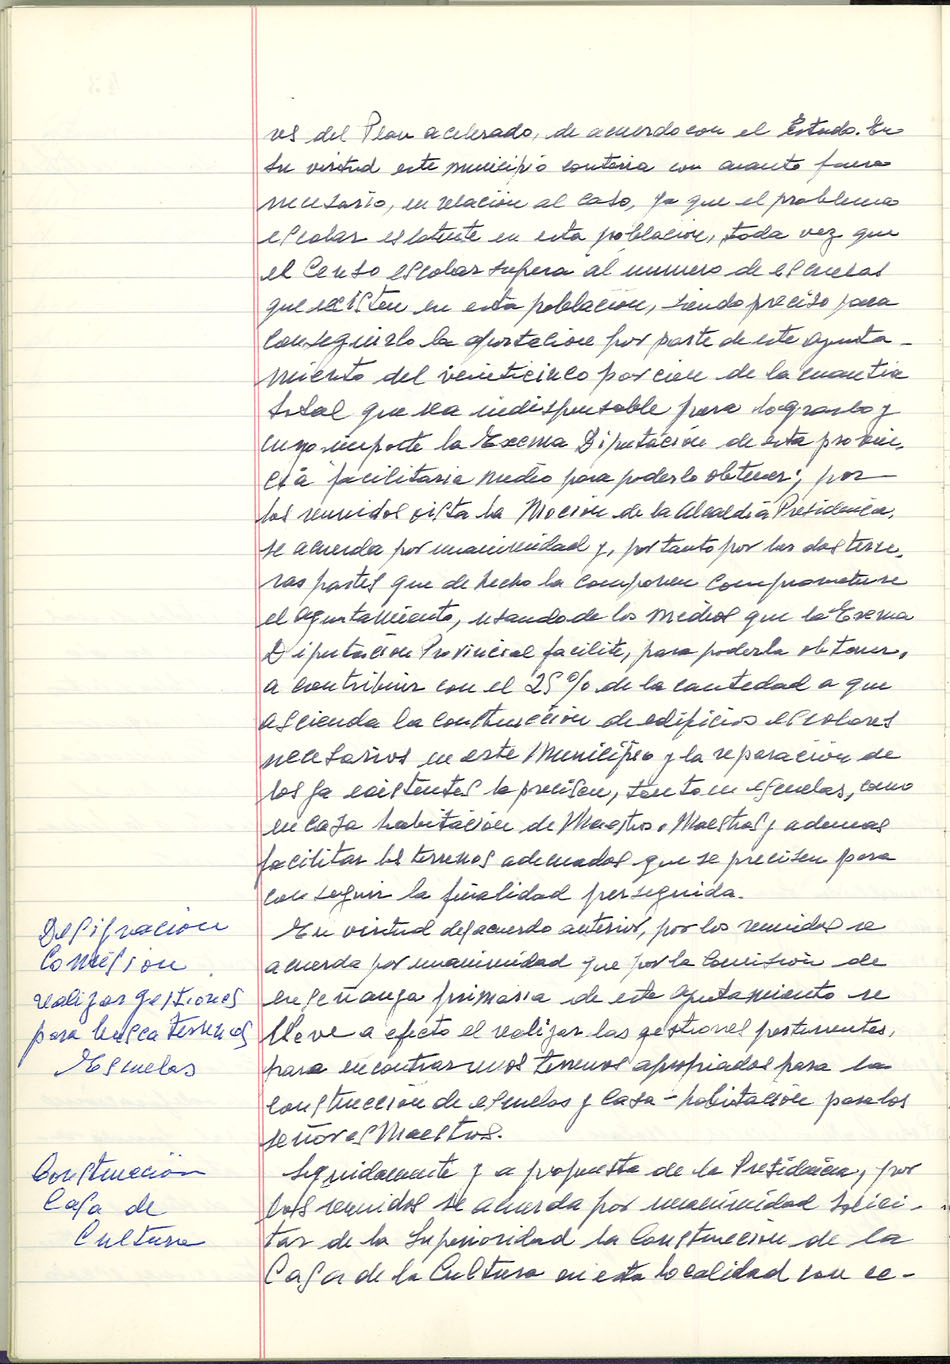 res del Plan acelerado, de acuerdo con el Estado. En
su virtud este municipio contaria con cuanto fuera
necesario, en relación al caso, ya que el problema
escolar es latente en esta poblacion, toda vez que
el Censo escolar supera al numero de escuelas
que existen en esta población, siendo preciso para
conseguirlo la aportacion por parte de este ayunta-
miento del veinticinco por cien de la cuantia
total que sea indispensable para lograrlo y
cuyo importe la Excma Diputación de esta provin-
cia facilitaria medio para poderlo obtener; por
los reunidos vista la Moción de la Alcaldia Presidencia,
se acuerda por unanimidad y, por tanto por las dos terce-
ras partes que de hecho la componen comprometerse
el ayuntamiento, usando de los medios que la Excma
Diputación Provincial facilite, para poderla obtener,
a contribuir con el 25% de la cantidad a que
ascienda la construcción de edificios escolares
necesarios en este Municipio y la reparación de
los ya existentes lo precisen, tanto en escuelas, como
en casa habitación de Maestros, Maestras y ademas
facilitar los terrenos adecuados que se precisen para
conseguir la finalidad perseguida.
Designación
Comision
realizar gestiones
para busca terrenos
Escuelas
En virtud del acuerdo anterior, por los reunidos se
acuerda por unanimidad que por la Comision de
enseñanza primaria de este ayuntamiento se
lleve a efecto el realizar las gestiones pertinentes,
para encontrar unos terrenos apropiados para la
construcción de escuelas y casa-habitación para los
señores Maestros.
Construcción
Casa de
Cultura
Seguidamente y a propuesta de la Presidencia, por
los reunidos se acuerda por unanimidad solici-
tar de la Superioridad la construcción de la
Casa de la Cultura en esta localidad con ce-